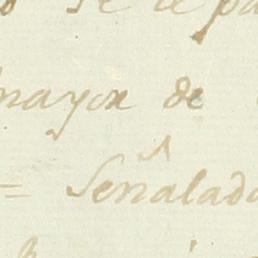 se le pa
mayor de
= Señalado